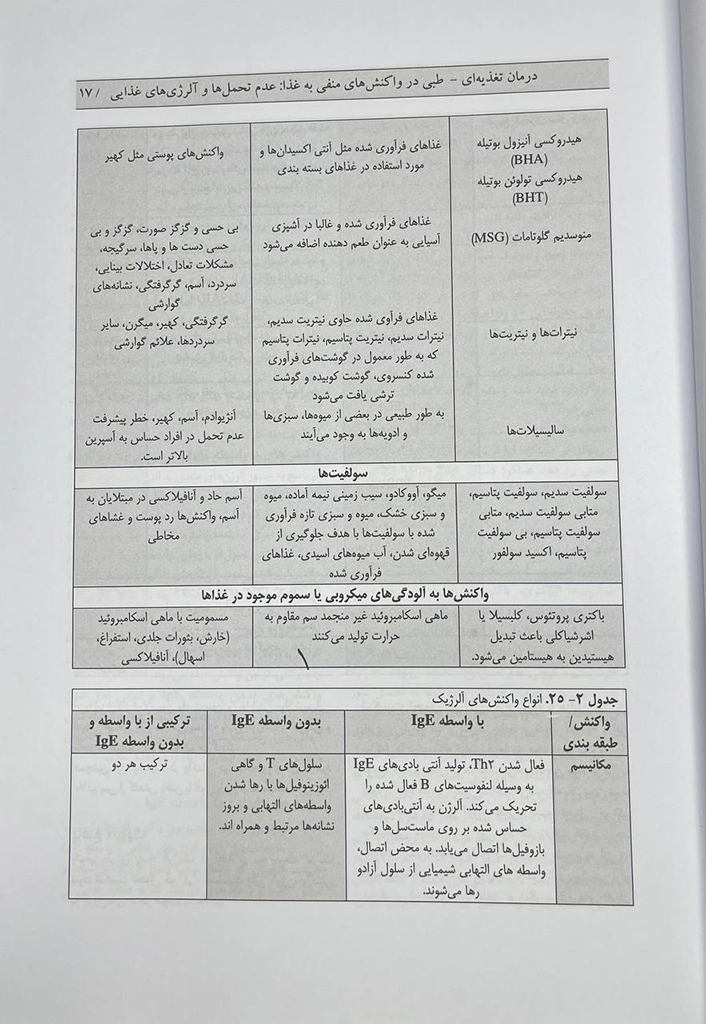 درمان تغذیه‌ای – طبی در واکنش‌های منفی به غذا: عدم تحمل‌ها و آلرژی‌های غذایی / ۱۷
هیدروکسی آنیزول بوتیله
(BHA)
هیدروکسی تولوئن بوتیله
(BHT)
غذاهای فرآوری شده مثل آنتی اکسیدان‌ها و
مورد استفاده در غذاهای بسته بندی
واکنش‌های پوستی مثل کهیر
منوسدیم گلوتامات (MSG)
غذاهای فرآوری شده و غالبا در آشپزی
آسیایی به عنوان طعم دهنده اضافه می‌شود
بی حسی و گزگز صورت، گزگز و بی
حسی دست ها و پاها، سرگیجه،
مشکلات تعادل، اختلالات بینایی،
سردرد، آسم، گرگرفتگی، نشانه‌های
گوارشی
نیترات‌ها و نیتریت‌ها
غذاهای فرآوی شده حاوی نیتریت سدیم،
نیترات سدیم، نیتریت پتاسیم، نیترات پتاسیم
که به طور معمول در گوشت‌های فرآوری
شده کنسروی، گوشت کوبیده و گوشت
ترشی یافت می‌شود
گرگرفتگی، کهیر، میگرن، سایر
سردردها، علائم گوارشی
سالیسیلات‌ها
به طور طبیعی در بعضی از میوه‌ها، سبزی‌ها
و ادویه‌ها به وجود می‌آیند
آنژیوادم، آسم، کهیر، خطر پیشرفت
عدم تحمل در افراد حساس به آسپرین
بالاتر است.
سولفیت‌ها
سولفیت سدیم، سولفیت پتاسیم،
متابی سولفیت سدیم، متابی
سولفیت پتاسیم، بی سولفیت
پتاسیم، اکسید سولفور
میگو، آووکادو، سیب زمینی نیمه آماده، میوه
و سبزی خشک، میوه و سبزی تازه فرآوری
شده با سولفیت‌ها با هدف جلوگیری از
قهوه‌ای شدن، آب میوه‌های اسیدی، غذاهای
فرآوری شده
آسم حاد و آنافیلاکسی در مبتلایان به
آسم، واکنش‌ها رد پوست و غشاهای
مخاطی
واکنش‌ها به آلودگی‌های میکروبی یا سموم موجود در غذاها
باکتری پروتئوس، کلبسیلا یا
اشرشیاکلی باعث تبدیل
هیستیدین به هیستامین می‌شود.
ماهی اسکامبروئید غیر منجمد سم مقاوم به
حرارت تولید می‌کنند
مسمومیت با ماهی اسکامبروئید
(خارش، بثورات جلدی، استفراغ،
اسهال)، آنافیلاکسی
جدول ۲- ۲۵. انواع واکنش‌های آلرژیک
واکنش/
طبقه بندی
با واسطه IgE
بدون واسطه IgE
ترکیبی از با واسطه و
بدون واسطه IgE
مکانیسم
فعال شدن Th۲، تولید آنتی بادی‌های IgE
به وسیله لنفوسیت‌های B فعال شده را
تحریک می‌کند. آلرژن به آنتی‌بادی‌های
حساس شده بر روی ماست‌سل‌ها و
بازوفیل‌ها اتصال می‌یابد. به محض اتصال،
واسطه های التهابی شیمیایی از سلول آزادو
رها می‌شوند.
سلول‌های T و گاهی
ائوزینوفیل‌ها با رها شدن
واسطه‌های التهابی و بروز
نشانه‌ها مرتبط و همراه اند.
ترکیب هر دو